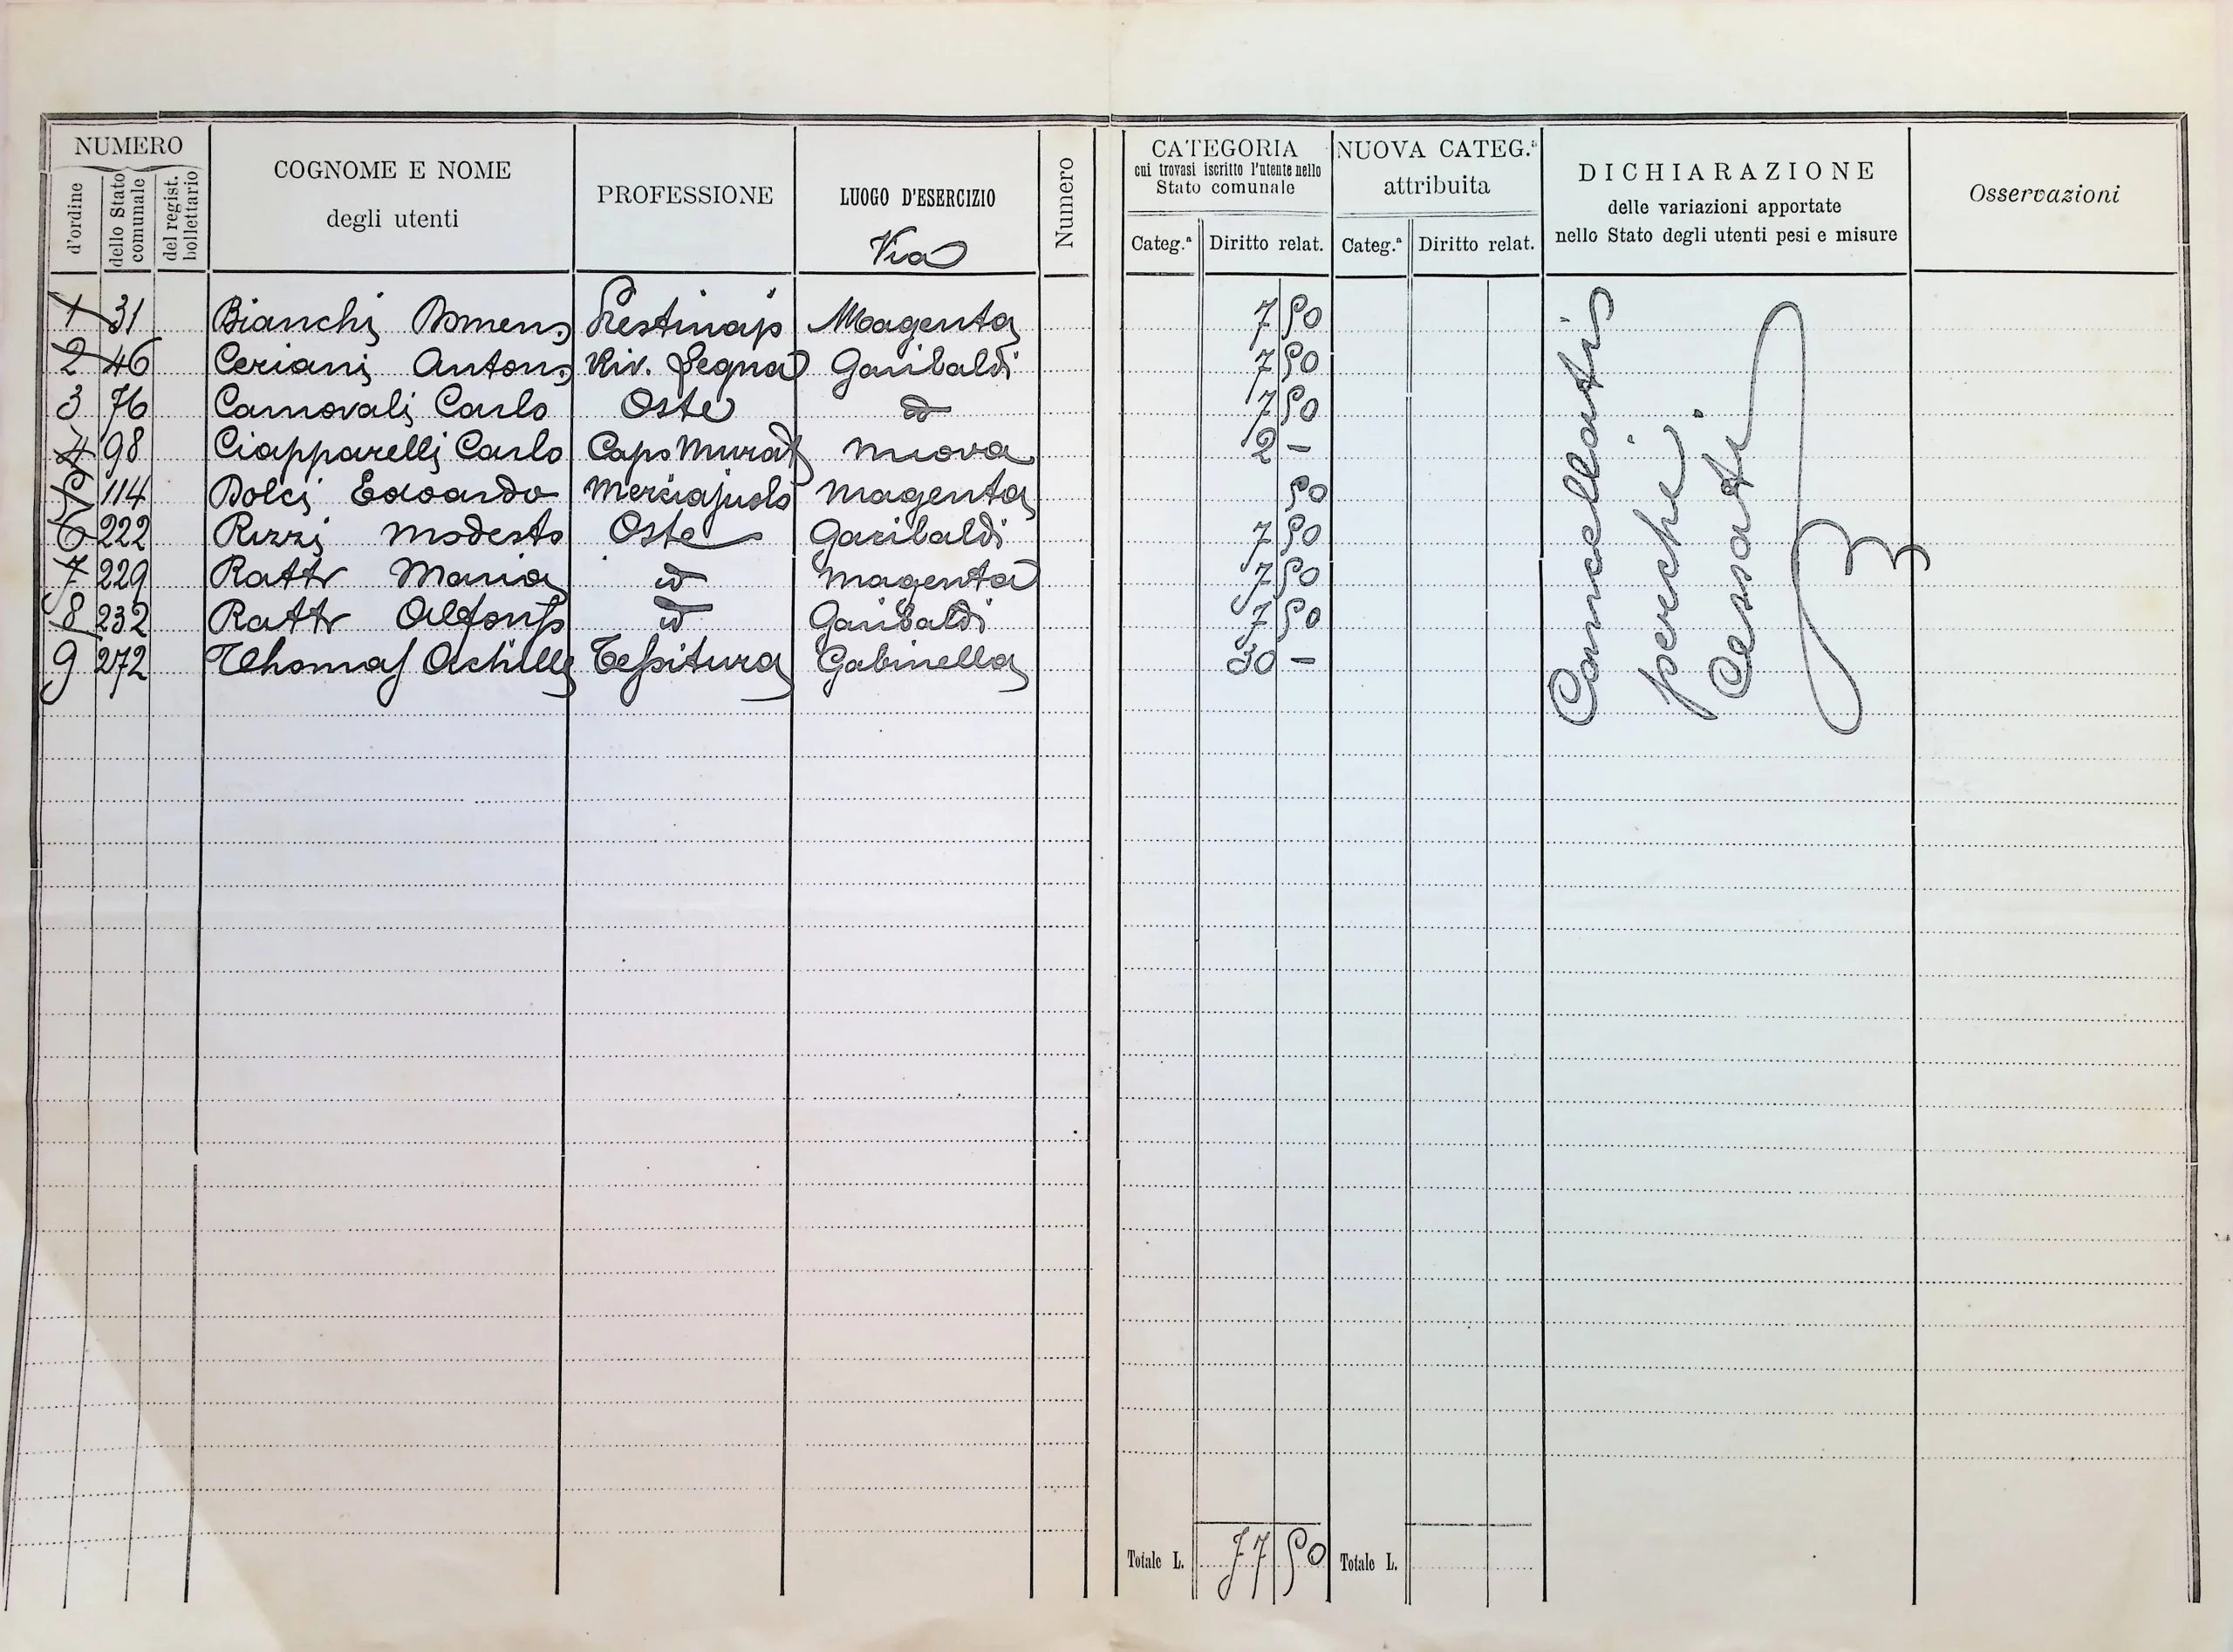 NUMERO
d'ordine
dello Stato comunale
del regist. bollettario
COGNOME E NOME
degli utenti
PROFESSIONE
LUOGO D'ESERCIZIO
Via
Numero
CATEGORIA
cui trovasi iscritto l'utente nello
Stato comunale
Categ.ª Diritto relat.
NUOVA CATEG.ª
attribuita
Categ.ª Diritto relat.
DICHIARAZIONE
delle variazioni apportate
nello Stato degli utenti pesi e misure
Osservazioni
1 31 Bianchi Domenico Prestinajo Magenta 7 50
2 46 Ceriani Antonio Riv. Legna Garibaldi 7 50
3 76 Carnovali Carlo Oste id 7 50
4 98 Ciapparelli Carlo Capo Murat Nuova 2 –
5 114 Dolci Edoardo Merciajuolo Magenta 50
6 222 Rizzi Modesto Oste Garibaldi 7 50
7 229 Ratti Maria id Magenta 7 50
8 232 Ratti Alfonso id Garibaldi 7 50
9 272 Thomas Achille Tessitura Gabinella 30 –
Cancellati
perchè
Cessati
Totale L. 77 50 Totale L.